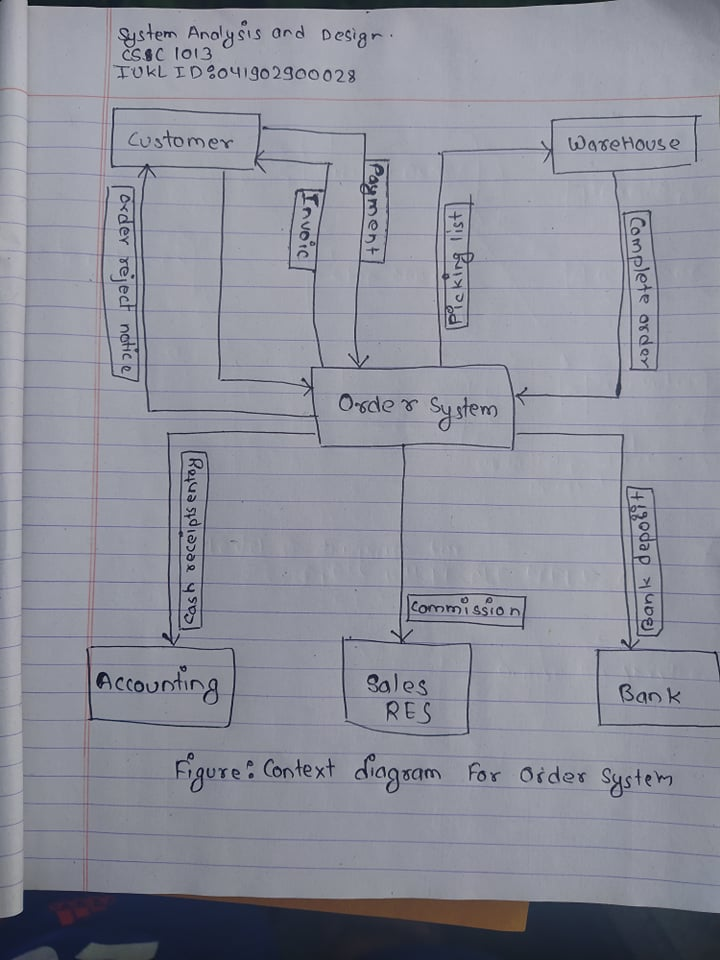 System Analysis and Design.
CSSC 1013
IUKL ID:041902900028
Customer
WareHouse
Payment
Invoic
order reject notice
Picking list
Complete order
Order System
Cash receipds
Bank depobit
Commission
Accounting
Sales
RES
Bank
Figure: Context diagram For Order System